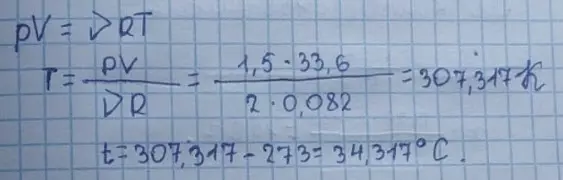 pV = νRT
T = pV / νR = 1,5 · 33,6 / 2 · 0,082 = 307,317 K
t = 307,317 - 273 = 34,317°C.